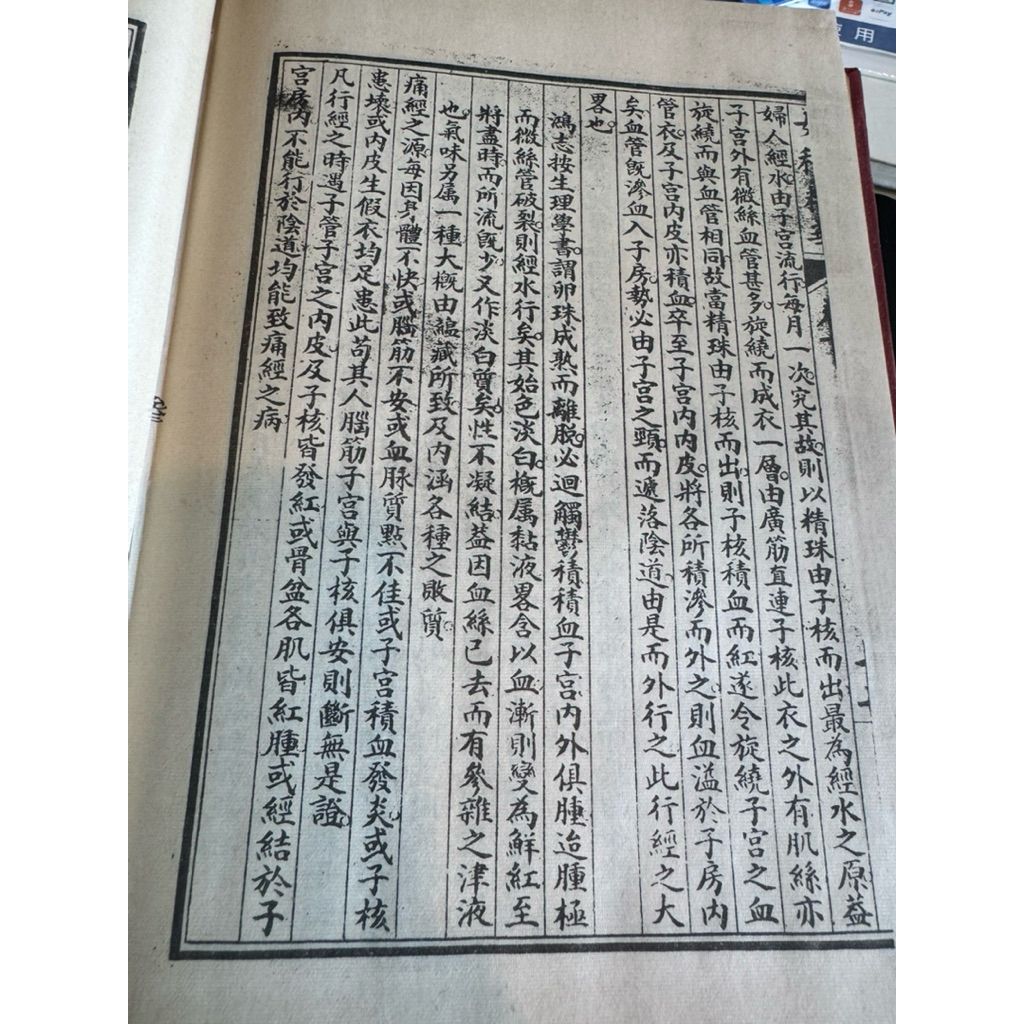 婦人經水由子宮流行每月一次究其故則以精珠由子核而出最為經水之原葢
子宮外有微絲血管甚多旋繞而成衣一層由廣筋直連子核此衣之外有肌絲亦
旋繞而與血管相同故當精珠由子核而出則子核積血而紅遂令旋繞子宮之血
管衣及子宮內皮亦積血卒至子宮內內皮將各所積滲而外之則血溢於子房內
矣血管旣滲血入子房勢必由子宮之頸而遞落陰道由是而外行之此行經之大
畧也
鴻志按生理學書謂卵珠成熟而離脫必迴觸鬱積積血子宮內外俱腫迨腫極
而微絲管破裂則經水行矣其始色淡白槪属黏液畧含以血漸則變為鮮紅至
將盡時而所流旣少又作淡白質矣性不凝結葢因血絲已去而有參雜之津液
也氣味另属一種大槪由縕藏所致及內涵各種之敗質
痛經之源每因身體不快或腦筋不安或血脉質點不佳或子宮積血發炎或子核
患壞或內皮生假衣均足患此苟其人腦筋子宮與子核俱安則斷無是證
凡行經之時遇子管子宮之內皮及子核皆發紅或骨盆各肌皆紅腫或經結於子
宮房內不能行於陰道均能致痛經之病
用